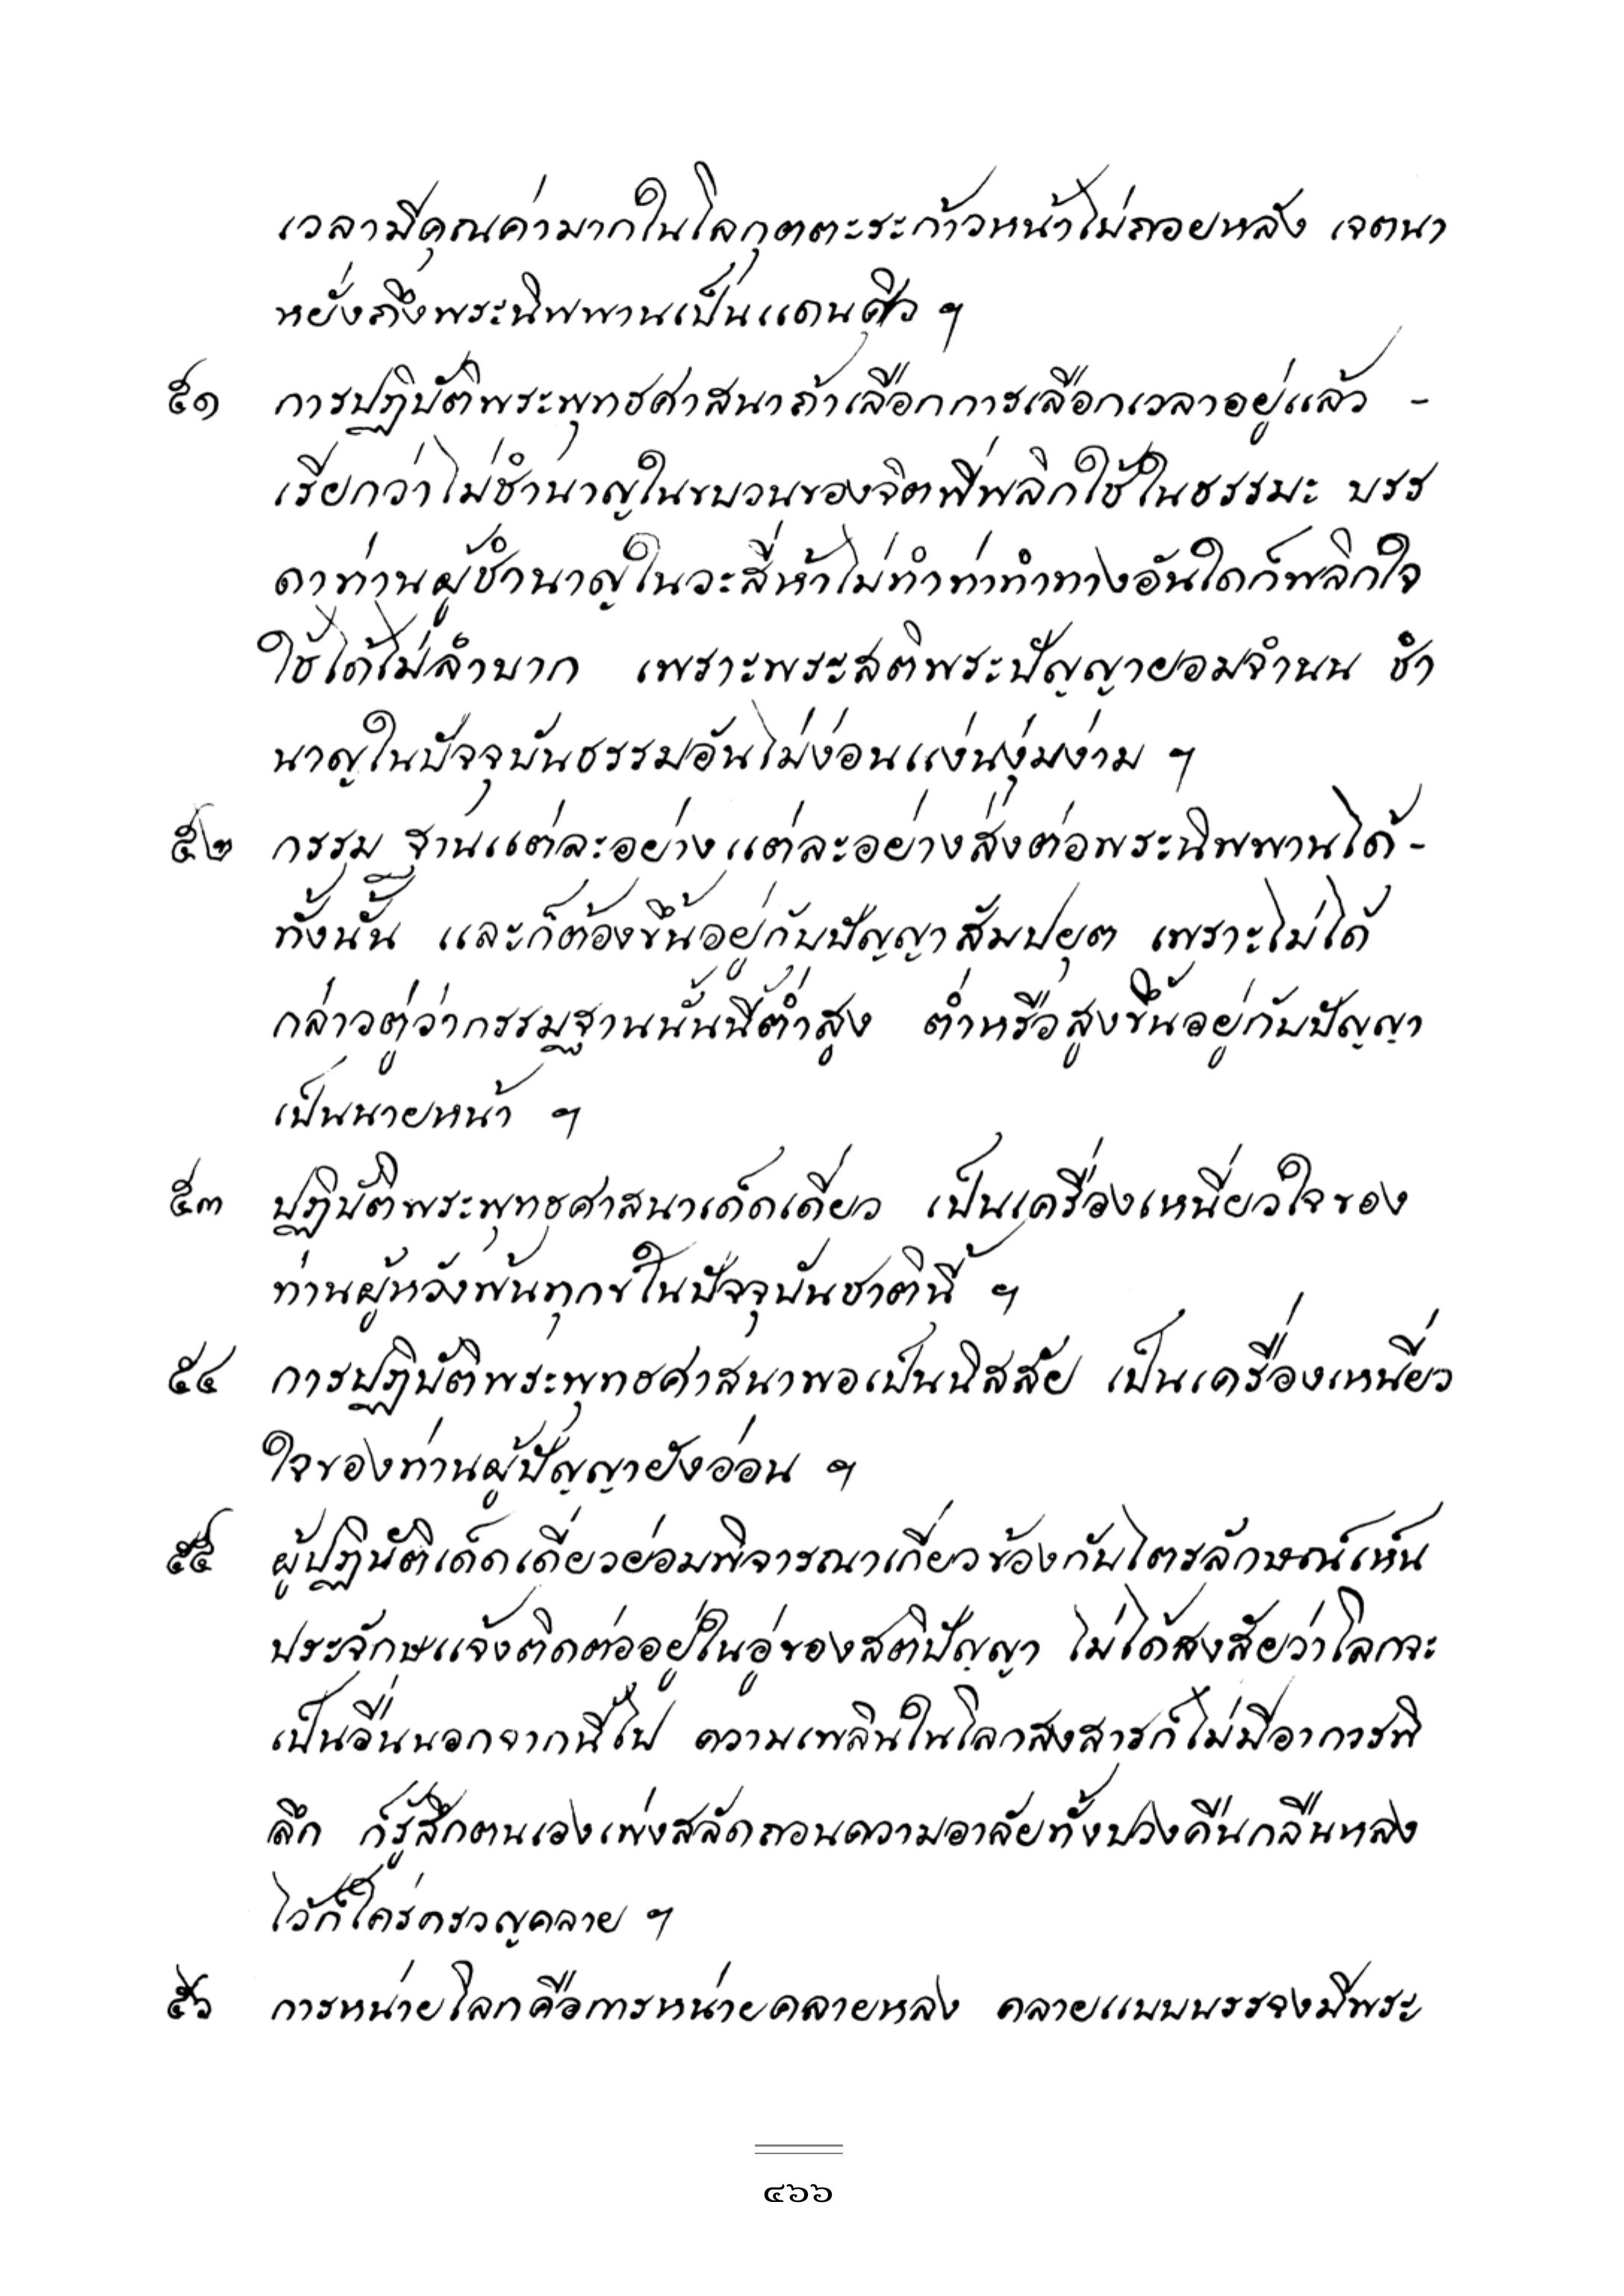 เวลามีคุณค่ามากในโลกุตตะระก้าวหน้าไม่ถอยหลัง เจตนา
หยั่งถึงพระนิพพานเป็นแดน ฯ
๕๑ การปฏิบัติพระพุทธศาสนาถ้าเลือกการเลือกเวลาอยู่แล้ว -
เรียกว่าไม่ชำนาญในขบวนของจิตที่พลิกใช้ในธรรมะ บรร
ดาท่านผู้ชำนาญในวะสี่ห้าไม่ทำท่าทำทางอันใดก็พลิกใจ
ใช้ได้ไม่ลำบาก เพราะพระสติพระปัญญายอมจำนน ชำ
นาญในปัจจุบันธรรมอันไม่ง่อนแง่นงุ่มง่าม ฯ
๕๒ กรรม ฐานแต่ละอย่างแต่ละอย่างส่งต่อพระนิพพานได้ -
ทั้งนั้น และก็ต้องขึ้นอยู่กับปัญญาสัมปยุต เพราะไม่ได้
กล่าวตู่ว่ากรรมฐานนั้นนี้ต่ำสูง ต่ำหรือสูงขึ้นอยู่กับปัญญา
เป็นนายหน้า ฯ
๕๓ ปฏิบัติพระพุทธศาสนาเด็ดเดี่ยว เป็นเครื่องเหนี่ยวใจของ
ท่านผู้หวังพ้นทุกขในปัจจุบันชาตินี้ ฯ
๕๔ การปฏิบัติพระพุทธศาสนาพอเป็นนิสสัย เป็นเครื่องเหนี่ยว
ใจของท่านผู้ปัญญายังอ่อน ฯ
๕๕ ผู้ปฏิบัติเด็ดเดี่ยวย่อมพิจารณาเกี่ยวข้องกับไตรลักษณ์เห็น
ประจักษแจ้งติดต่ออยู่ในอู่ของสติปัญญา ไม่ได้สงสัยว่าโลกจะ
เป็นอื่นนอกจากนี้ไป ความเพลินในโลกสงสารก็ไม่มีอาการพิ
ลึก ก็รู้สึกตนเองเพ่งสลัดถอนความอาลัยทั้งปวงคืนกลืนหลง
ไว้ก็ใคร่ครวญคลาย ฯ
๕๖ การหน่ายโลกคือการหน่ายคลายหลง คลายแบบบรรจงมีพระ
๔๖๖